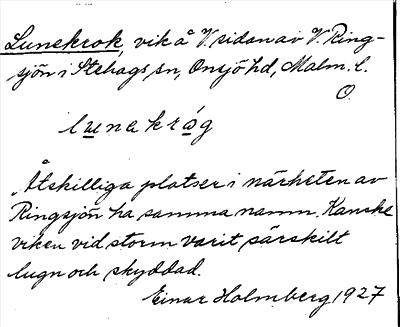 Lunekrok, vik å V. sidan av V. Ring-
sjön i Stehags sn, Onsjö hd, Malm. l.
O.
lunekråg
Åtskilliga platser i närheten av
Ringsjön ha samma namn. Kanske
viken vid storm varit särskilt
lugn och skyddad.
Einar Holmberg 1927